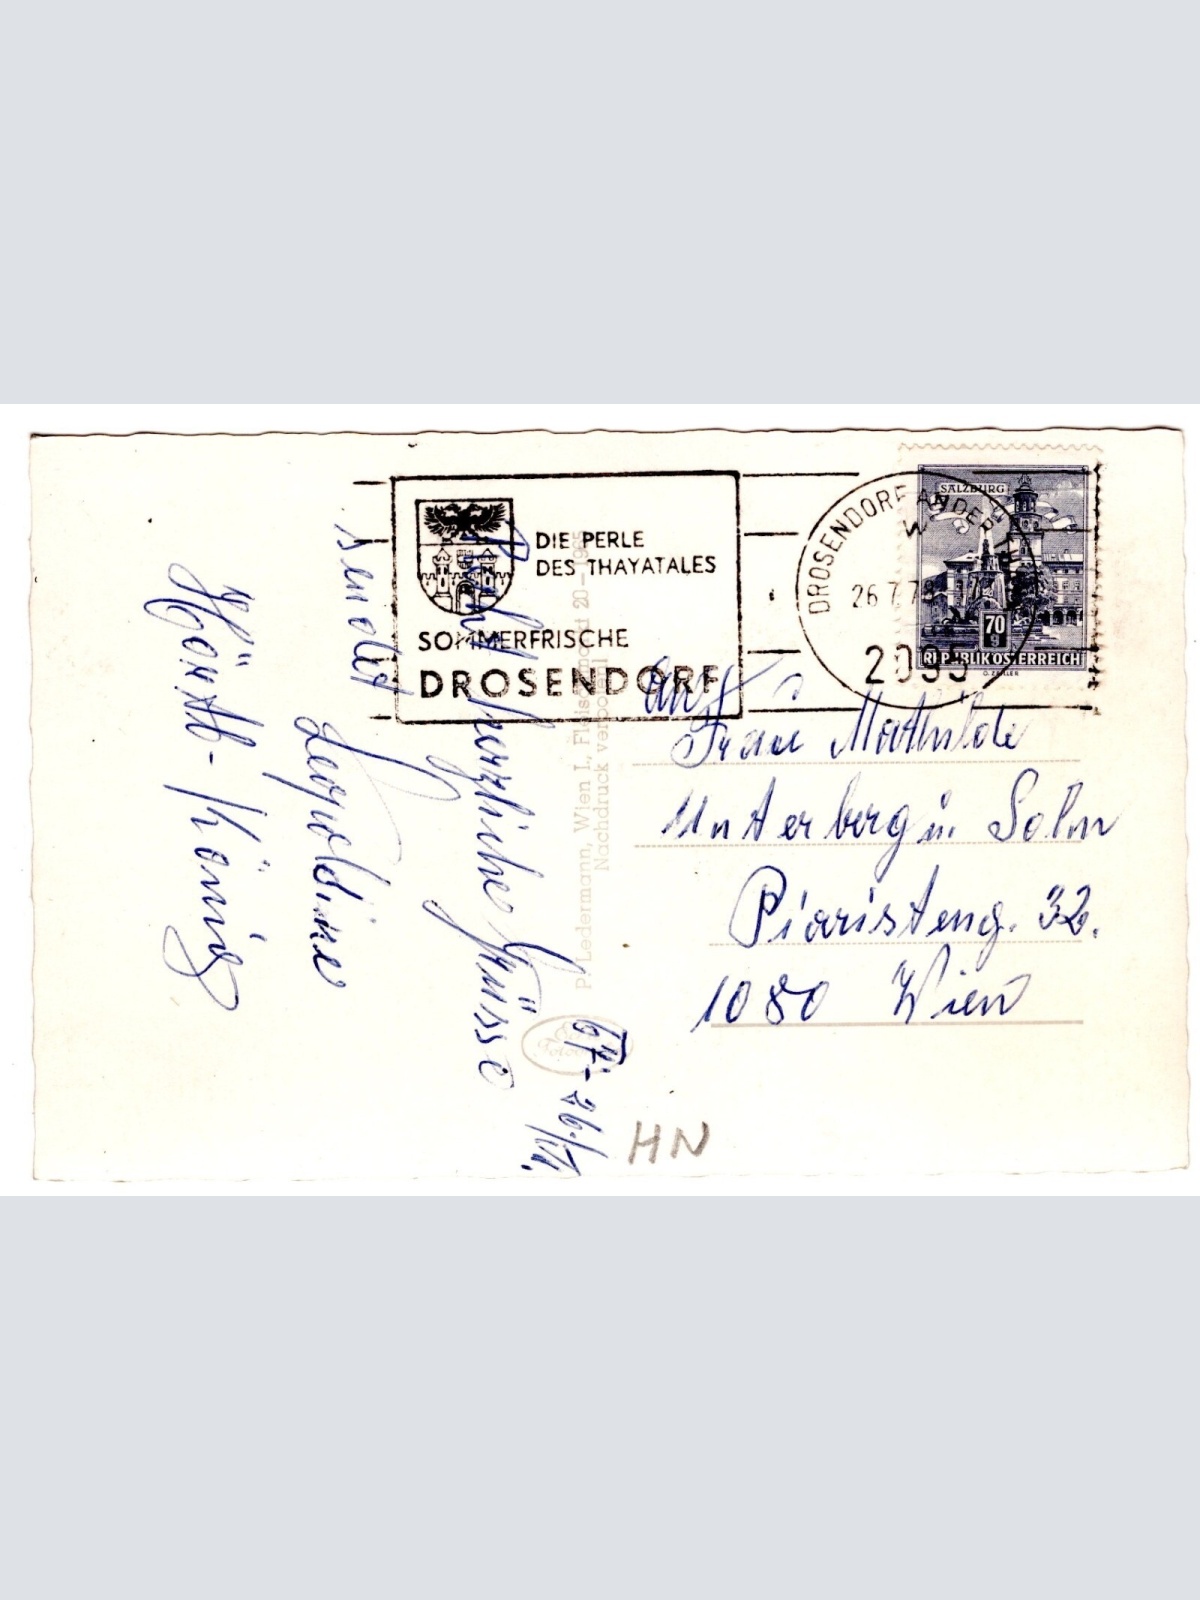 DIE PERLE
DES THAYATALES
SOMMERFRISCHE
DROSENDORF
DROSENDORF AN DER
26.7.7
2095
SALZBURG
70
g
REPUBLIK ÖSTERREICH
An
Frau Mathilde
Unterberg u. Sohn
Piaristeng. 32.
1080 Wien
herzliche Grüsse
sendet
Leopoldine
König
P. Ledermann, Wien I, Fleischmarkt 20 - 1965
Nachdruck verboten
HN